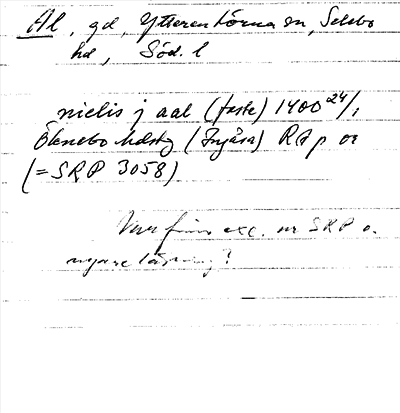 Al, gd, Ytterenhörna sn, Selebo
hd, Söd. l
nielis j aal (faste) 1400 24/1
Öknebo hdstg (Ingåsa) RAp or
(=SRP 3058)
exc. ur SRP o.
nyare läsning?